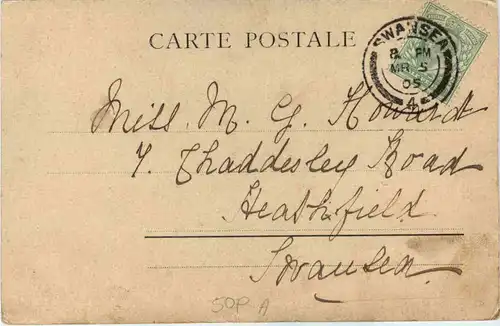 CARTE POSTALE
SWANSEA
8 PM
MR 5
05
4
Miss. M. G. Howardt
7. Chaddesley Road
Heathfield
Swansea.
50P A